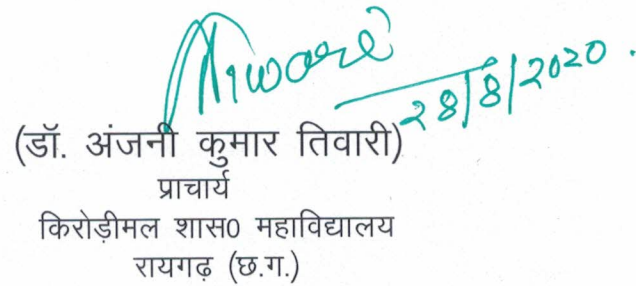 Tiwari
28/8/2020.
(डॉ. अंजनी कुमार तिवारी)
प्राचार्य
किरोड़ीमल शास0 महाविद्यालय
रायगढ़ (छ.ग.)